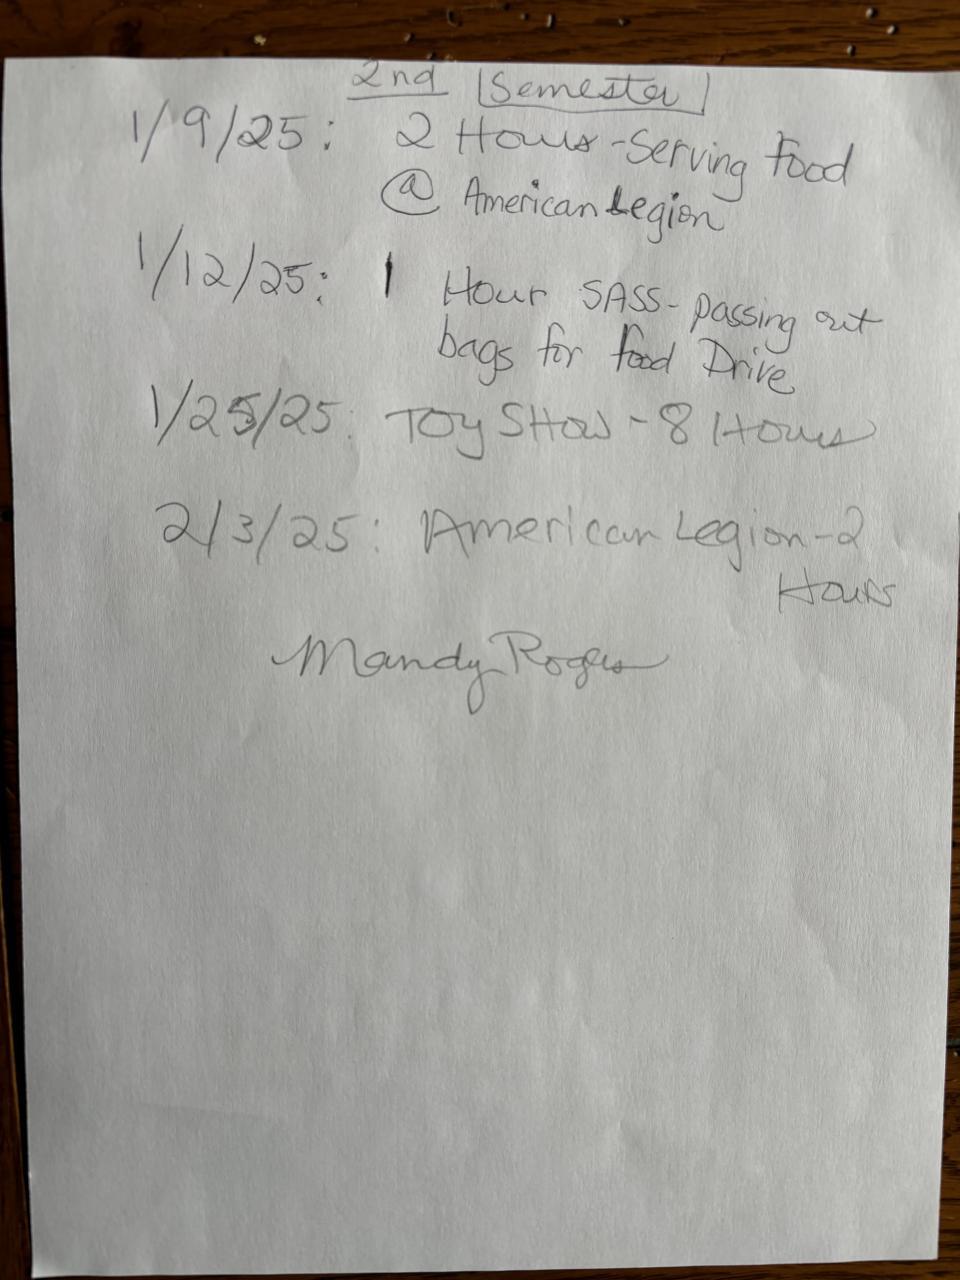 2nd Semester
1/9/25: 2 Hours - Serving Food
@ American Legion
1/12/25: 1 Hour SASS - passing out
bags for food Drive
1/25/25: Toy SHow - 8 Hours
2/3/25: American Legion - 2
Hours
Mandy Rogers